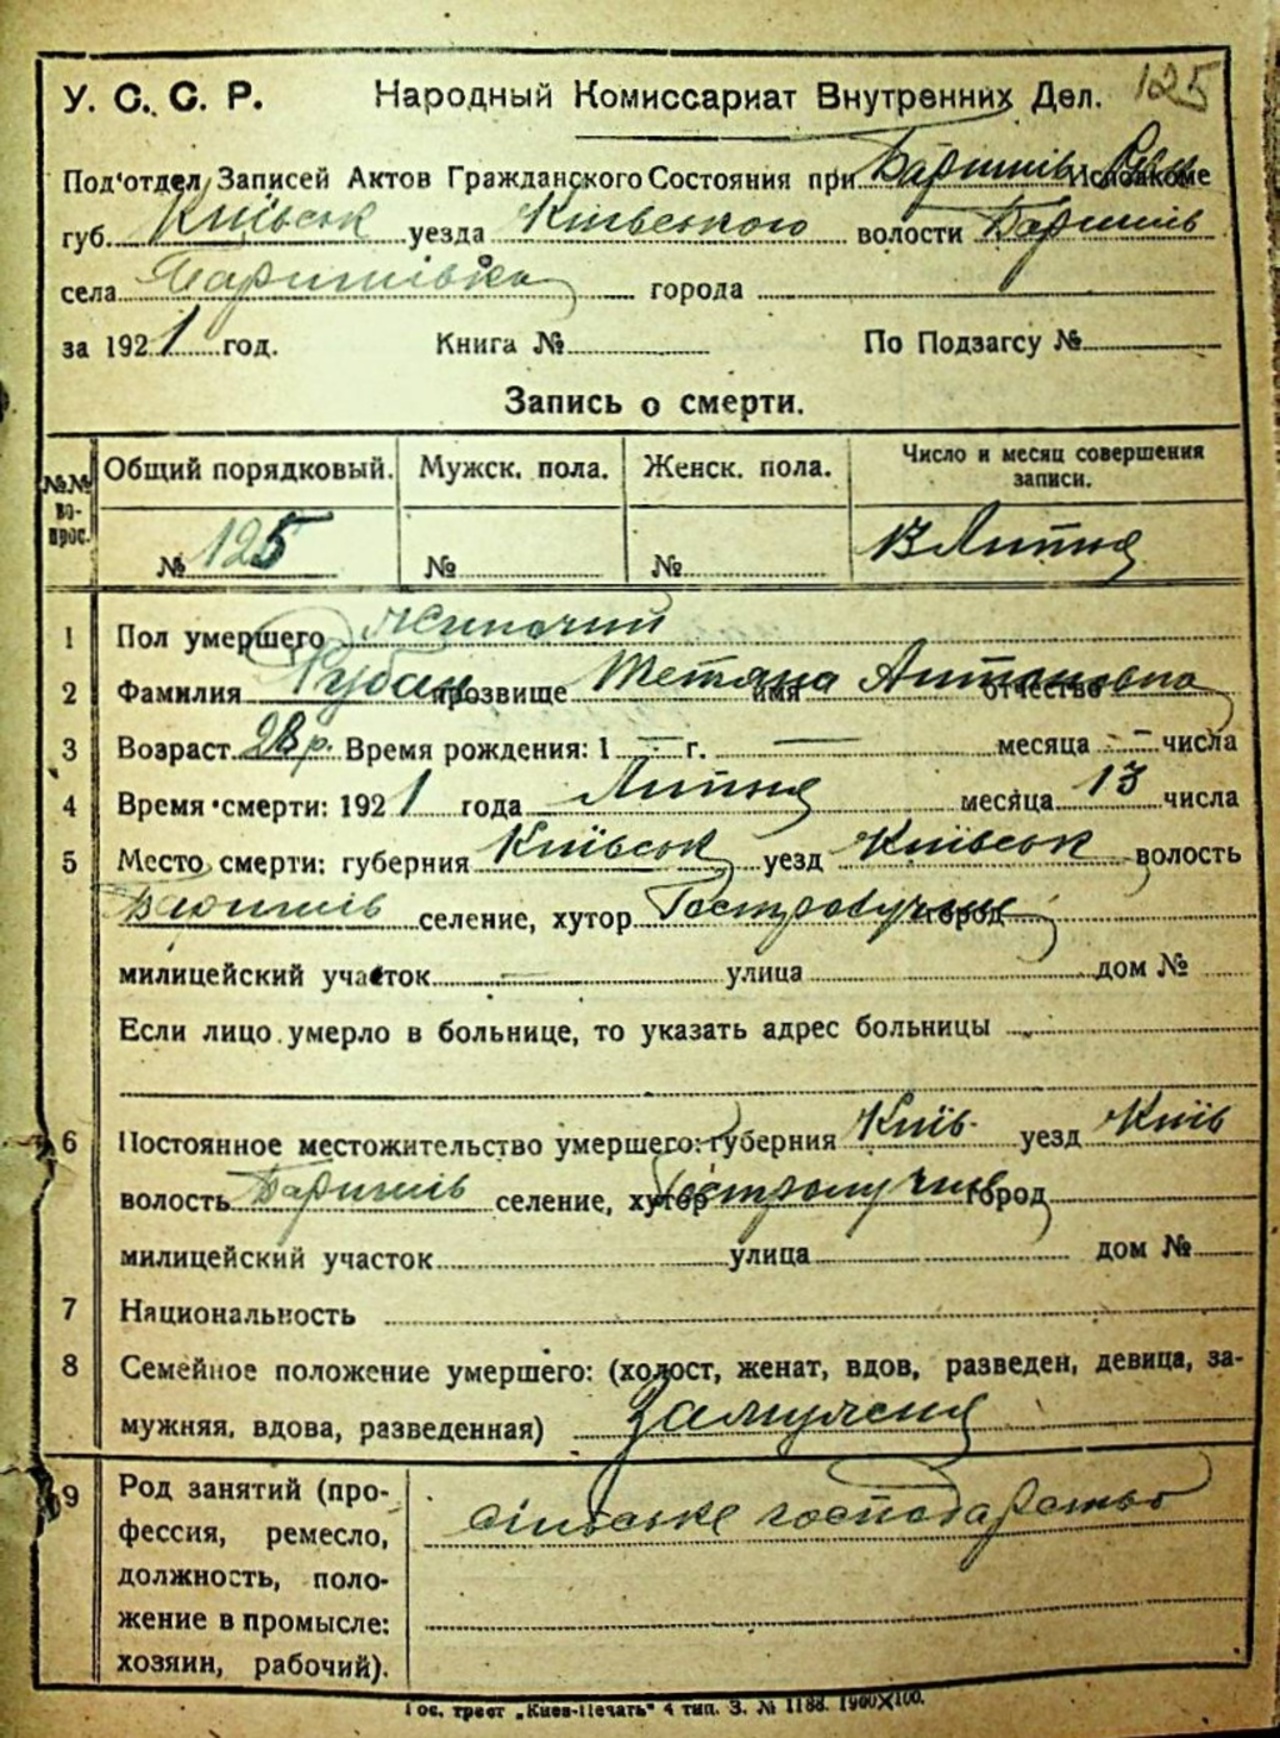 125
У. С. С. Р. Народный Комиссариат Внутренних Дел.
Под'отдел Записей Актов Гражданского Состояния при Баришів. Исполкоме
губ. Київськ уезда Київського волости Баришів
села Баришівка города
за 1921 год. Книга № По Подзагсу №
Запись о смерти.
№№ во-прос. Общий порядковый. Мужск. пола. Женск. пола. Число и месяц совершения записи.
№ 125 № № 13 Липня
1 Пол умершего Жиночий
2 Фамилия Рубан прозвище Тетяна имя Антоновна отчество
3 Возраст 28 р. Время рождения: 1 — г. — месяца — числа
4 Время смерти: 1921 года Липня месяца 13 числа
5 Место смерти: губерния Київськ уезд Київськ волость
Баришів селение, хутор город
милицейский участок — улица дом №
Если лицо умерло в больнице, то указать адрес больницы
6 Постоянное местожительство умершего: губерния Київ. уезд Київ
волость Баришів селение, хутор город
милицейский участок улица дом №
7 Национальность
8 Семейное положение умершего: (холост, женат, вдов, разведен, девица, за-
мужняя, вдова, разведенная) Замужня
9 Род занятий (про-
фессия, ремесло, сільське господарство
должность, поло-
жение в промысле:
хозяин, рабочий).
Гос. трест „Киев-Печать“ 4 тип. З. № 1188. 1900×100.